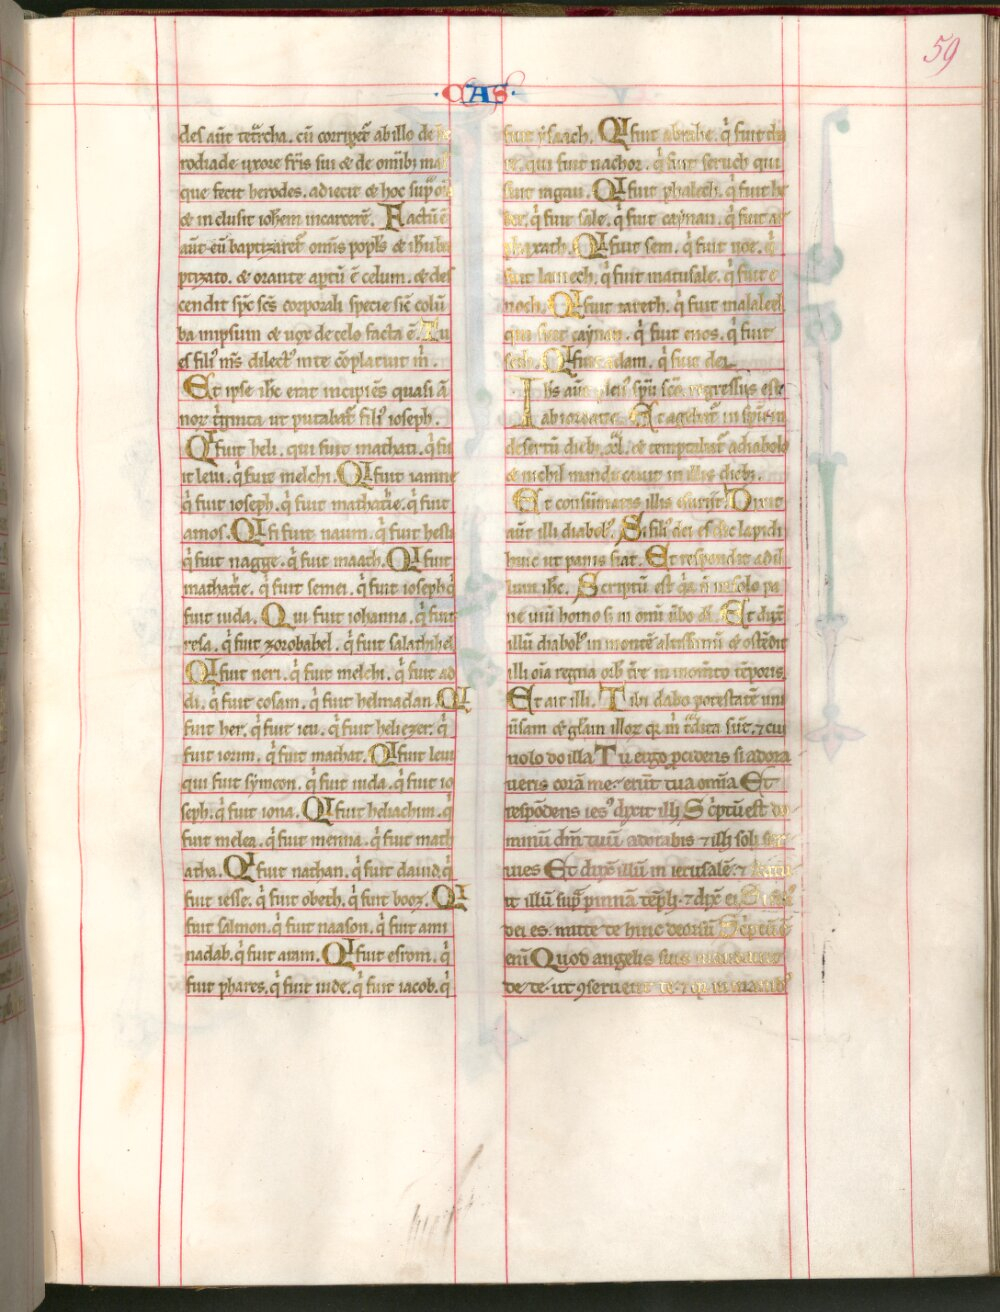 59
·CAS·
des aut̄ tetr̄cha. cū corriꝑet᷑ ab illo de he
rodiade uxore fr̄is sui ⁊ de om̄ib; mal
que fecit herodes. adiecit ⁊ hoc suꝑ oīa
⁊ in clusit ioh̄em in carcerē. Factū ē
aut̄ cū baptizaret᷑ omīs popl̄s ⁊ ih̄u ba
ptizato. ⁊ orante aptū ē celum. ⁊ des
cendit sp̄c sc̄s corporali specie sic̄ colū
ba in ipsum ⁊ uox de celo facta ē. Tu
es fili᷒ m̄s dilect᷒ in te cōplacuit m̄.
Et ipse ih̄c erat incipiēs quasi ā
noꝝ t̄ginta ut putabat᷑ fili᷒ ioseph.
QI fuit heli. qui fuit mathati. q̄ fu
it leui. q̄ fuit melchi. QI fuit iamne
q̄ fuit ioseph. q̄ fuit mathat̄ie. q̄ fuit
amos. QI fi fuit naum. q̄ fuit hesli
q̄ fuit nagge. q̄ fuit maath. QI fuit
mathat̄ie. q̄ fuit semei. q̄ fuit ioseph q̄
fuit iuda. Qui fuit iohanna. q̄ fuit
resa. q̄ fuit zorobabel. q̄ fuit salathihel
QI fuit neri. q̄ fuit melchi. q̄ fuit ad
di. q̄ fuit cosam. q̄ fuit helmadan. QI
fuit her. q̄ fuit ieu. q̄ fuit heliezer. q̄
fuit iorim. q̄ fuit mathat. QI fuit leui
qui fuit sẏmeon. q̄ fuit iuda. q̄ fuit io
seph. q̄ fuit iona. QI fuit heliachim. q̄
fuit melea. q̄ fuit menna. q̄ fuit math
atha. QI fuit nathan. q̄ fuit dauid. q̄
fuit iesse. q̄ fuit obeth. q̄ fuit booz. QI
fuit salmon. q̄ fuit naason. q̄ fuit ami
nadab. q̄ fuit aram. QI fuit esrom. q̄
fuit phares. q̄ fuit iude. q̄ fuit iacob. q̄
fuit ẏsaach. QI fuit abrahe. q̄ fuit tha
re. qui fuit nachor. q̄ fuit seruch qui
fuit ragau. QI fuit phalech. q̄ fuit he
ber. q̄ fuit sale. q̄ fuit caẏnan. q̄ fuit ar
phaxath. QI fuit sem. q̄ fuit noe. q̄
fuit lamech. q̄ fuit matusale. q̄ fuit e
noch. QI fuit iareth. q̄ fuit malaleel
qui fuit caẏnan. q̄ fuit enos. q̄ fuit
seth. QI fuit adam. q̄ fuit dei
Ih̄s aut̄ plen᷒ sp̄u sc̄o regressus est
ab iordane. Et agebat᷑ in sp̄u in
desertū dieb; xl. ⁊ temptabat᷑ a diabolo
⁊ nichil manducauit in illis dieb;.
Et consūmatis illis esuriit. Dixit
aut̄ illi diabol᷒. Si fili᷒ dei es dic lapidi
huic ut panis fiat. Et respondit ad il
lum ih̄c. Scriptū est q̄a n̄ in solo pa
ne uiuit homo s; in omī ūbo di. Et duxit
illū diabol᷒ in montē altissimū ⁊ ostēdit
illi oīa regna orb̄ t̄re in momēto tēporis
Et ait illi. Tibi dabo potestatē uni
ūsam ⁊ gl̄am illoꝝ q̄ m̄ t̄dita sūt. ⁊ cui
uolo do illa Tu ergo procidens si adora
ueris corā me. erūt tua omīa Et
respōdens ies᷒ dixit illi Sc̄ptū est do
minū dm̄ tuū adorabis ⁊ illi soli ser
uies Et duxit illū in ierusalē. ⁊ statu
it illū sup̄ pinnā tēpli. ⁊ dix̄ ei Si fili᷒
dei es. mitte te hinc deorsū Sc̄ptū ē
enī Quod angelis suis mandauit
de te. ut ꝯseruent te. ⁊ q̄a in manib᷒